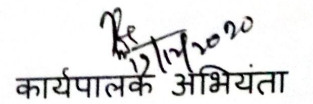 17/12/2020
कार्यपालक अभियंता